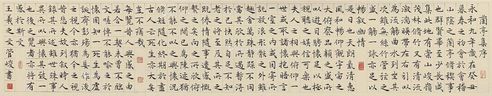 蘭亭集序
永和九年歲在癸丑
暮春之初會于會稽
山陰之蘭亭修禊事
也群賢畢至少長咸
集此地有崇山峻嶺
茂林脩竹又有清流
激湍映帶左右引以
為流觴曲水列坐其
次雖無絲竹管絃之
盛一觴一詠亦足以
暢敘幽情
是日也天朗氣清惠
風和暢仰觀宇宙之
大俯察品類之盛所
以遊目騁懷足以極
視聽之娛信可樂也
夫人之相與俯仰一
世或取諸懷抱悟言
一室之內或因寄所
託放浪形骸之外雖
趣舍萬殊靜躁不同
當其欣於所遇暫得
於己快然自足不知
老之將至及其所之
既倦情隨事遷感慨
係之矣向之所欣俛
仰之間已為陳迹猶
不能不以之興懷況
脩短隨化終期於盡
古人云死生亦大矣
豈不痛哉
每覽昔人興感之由
若合一契未嘗不臨
文嗟悼不能喻之於
懷固知一死生為虛
誕齊彭殤為妄作後
之視今亦猶今之視
昔悲夫故列敘時人
錄其所述雖世殊事
異所以興懷其致一
也後之覽者亦將有
感於斯文
王羲之文 管峻書